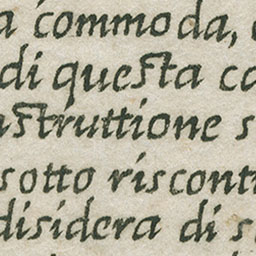 a commoda,
di questa co
nstruttione s
sotto riscont
disidera di s